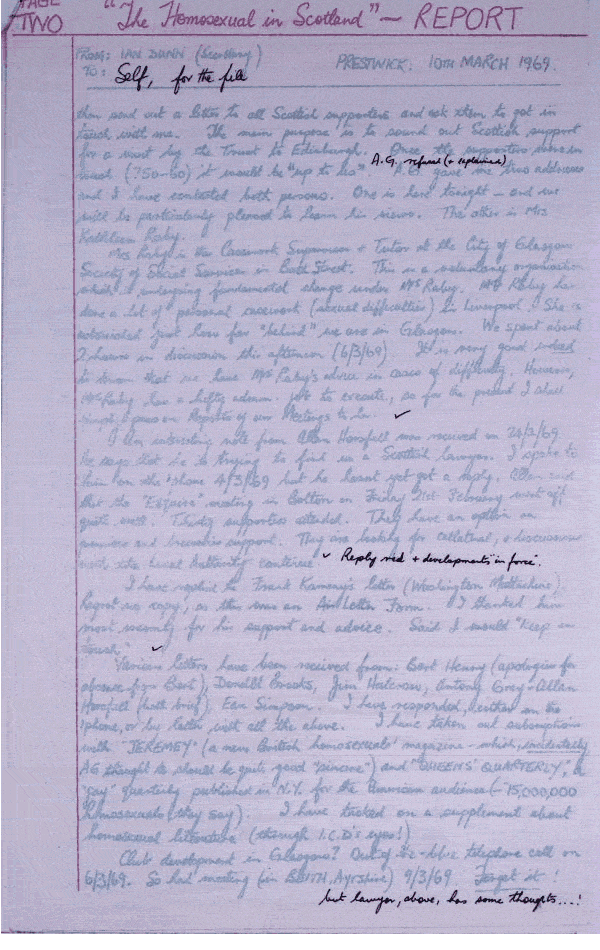 PAGE TWO "The Homosexual in Scotland" — REPORT
FROM: IAN DUNN (Secretary) PRESTWICK. 10TH MARCH 1969.
TO: Self, for the file
then send out a letter to all Scottish supporters and ask them to get in
touch with me. The main purpose is to sound out Scottish support
for a visit by the Trust to Edinburgh. Once the supporters were in
touch (?50-60) it would be "up to us" A.G. refused (+ explained) A.G. gave me two addresses
and I have contacted both persons. One is here tonight – and we
will be particularly pleased to learn his views. The other is Mrs
Kathleen Raby.
Mrs Raby is the Casework Supervisor + Tutor at the City of Glasgow
Society of Social Services in Bath Street. This is a voluntary organisation
which is undergoing fundamental change under Mrs Raby. Mrs Raby has
done a lot of personal casework (sexual difficulties) in Liverpool. She is
astonished just how far "behind" we are in Glasgow. We spent about
2 hours in discussion this afternoon (6/3/69) It is very good indeed
to know that we have Mrs Raby's advice in cases of difficulty. However,
Mrs Raby has a hefty admin. job to execute, so for the present I shall
simply pass on Reports of our Meetings to her. ✓
An interesting note from Allan Horsfall was received on 24/2/69
He says that he is trying to find us a Scottish lawyer. I spoke to
him on the 'phone 4/3/69 but he hasnt yet got a reply. Allan said
that the "Esquire" meeting in Bolton on Friday 21st February went off
quite well. Thirty supporters attended. They have an option on
premises and breweries support. They are looking for collateral, + discussions
with the Local Authority continue. ✓ Reply recd + developments "in force".
I have replied to Frank Kameny's letter (Washington Mattachine)
Regret no copy, as this was an Air Letter Form. I thanked him
most warmly for his support and advice. Said I would "keep in
touch" ✓
Various letters have been received from: Bert Henry (apologies for
absence from Bert), Donald Brooks, Jim Halcrow, Antony Grey + Allan
Horsfall (both brief), Ean Simpson. I have responded, either on the
'phone, or by letter with all the above. I have taken out subscriptions
with "JEREMEY" (a new British homosexuals' magazine – which, incidentally
AG thought to should be quite good "sincere") and "QUEENS' QUARTERLY", a
"gay" quarterly published in N.Y. for the American audience (– 15,000,000
homosexuals (they say). I have tacked on a supplement about
homosexual literature (through I.C.D's eyes!)
Club development in Glasgow? Out-of-the-blue telephone call on
6/3/69. So had meeting (in BEITH, Ayrshire) 9/3/69 Forget it!
but lawyer, above, has some thoughts...!